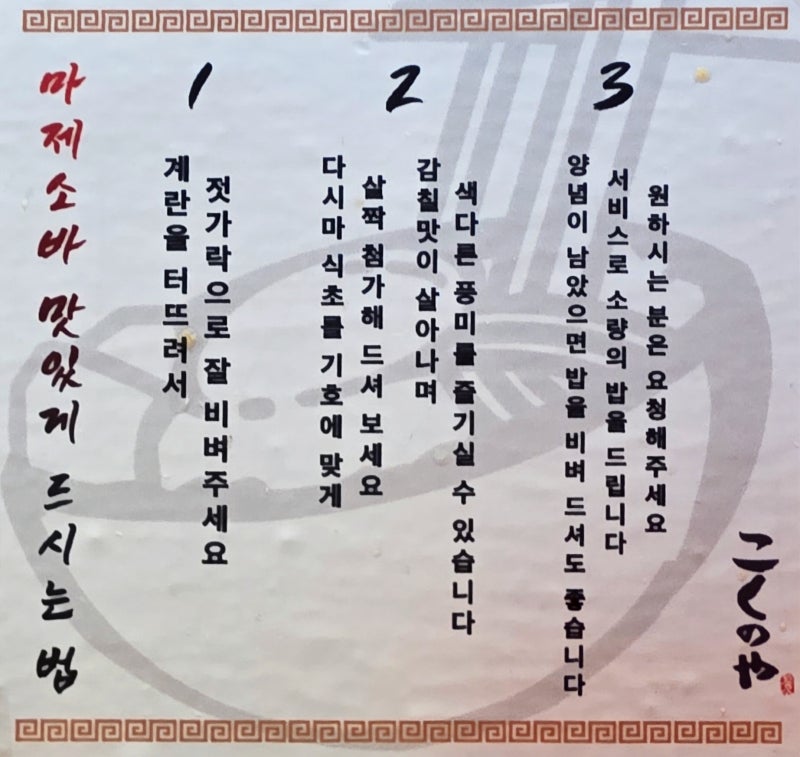 마제소바 맛있게 드시는 법
1
계란을 터뜨려서
젓가락으로 잘 비벼주세요
2
다시마 식초를 기호에 맞게
살짝 첨가해 드셔 보세요
감칠맛이 살아나며
색다른 풍미를 즐기실 수 있습니다
3
양념이 남았으면 밥을 비벼 드셔도 좋습니다
서비스로 소량의 밥을 드립니다
원하시는 분은 요청해주세요